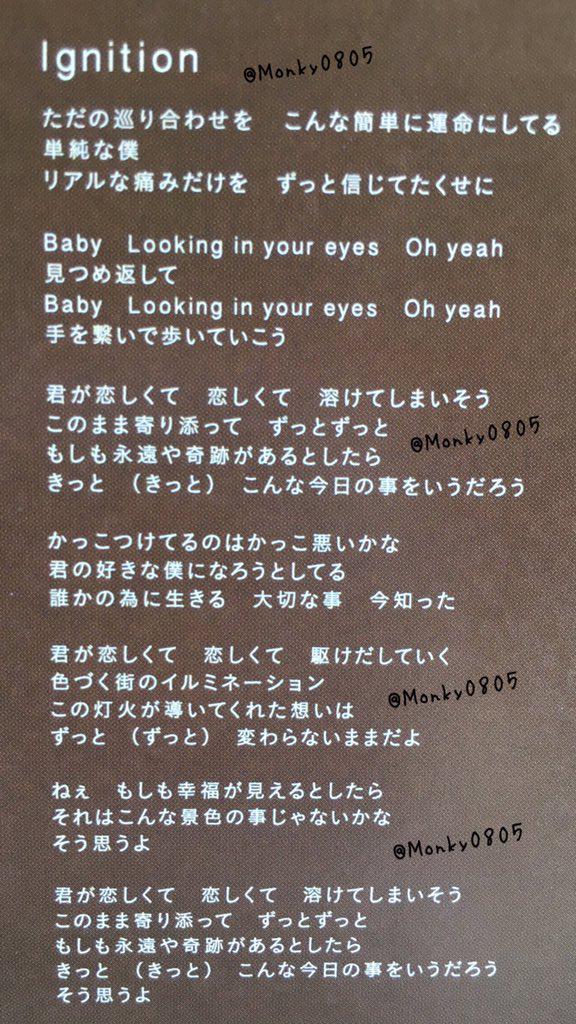 Ignition
@Monky0805
ただの巡り合わせを　こんな簡単に運命にしてる
単純な僕
リアルな痛みだけを　ずっと信じてたくせに
Baby　Looking in your eyes　Oh yeah
見つめ返して
Baby　Looking in your eyes　Oh yeah
手を繋いで歩いていこう
君が恋しくて　恋しくて　溶けてしまいそう
このまま寄り添って　ずっとずっと
@Monky0805
もしも永遠や奇跡があるとしたら
きっと　（きっと）　こんな今日の事をいうだろう
かっこつけてるのはかっこ悪いかな
君の好きな僕になろうとしてる
誰かの為に生きる　大切な事　今知った
君が恋しくて　恋しくて　駆けだしていく
色づく街のイルミネーション
@Monky0805
この灯火が導いてくれた想いは
ずっと　（ずっと）　変わらないままだよ
ねぇ　もしも幸福が見えるとしたら
それはこんな景色の事じゃないかな
そう思うよ
@Monky0805
君が恋しくて　恋しくて　溶けてしまいそう
このまま寄り添って　ずっとずっと
もしも永遠や奇跡があるとしたら
きっと　（きっと）　こんな今日の事をいうだろう
そう思うよ